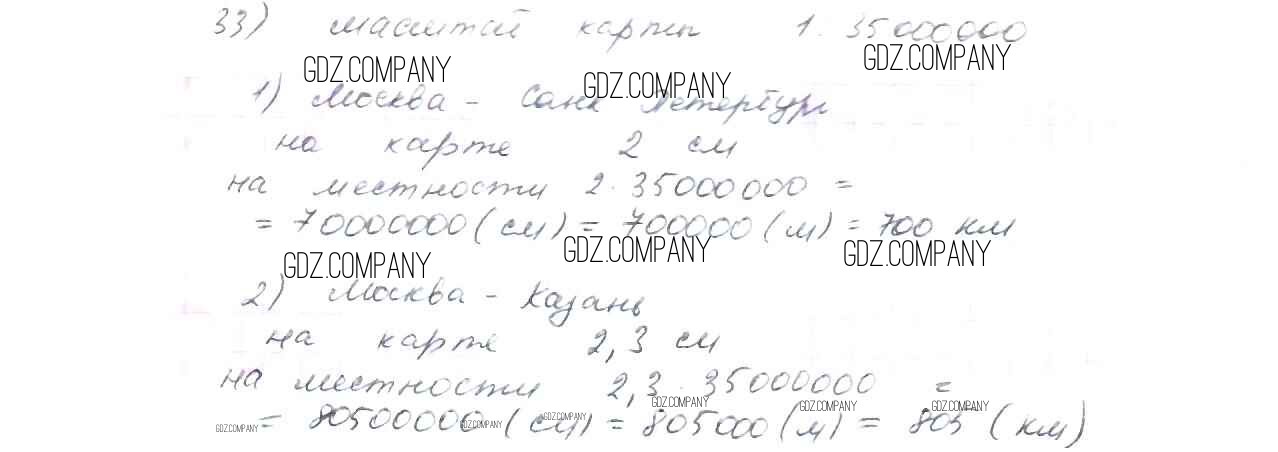 33) масштаб карты 1:35000000
GDZ.COMPANY GDZ.COMPANY GDZ.COMPANY
1) Москва - Санк Петербург
на карте 2 см
на местности 2·35000000 =
= 70000000 (см) = 700000 (м) = 700 км
GDZ.COMPANY GDZ.COMPANY GDZ.COMPANY
2) Москва - Казань
на карте 2,3 см
на местности 2,3·35000000 =
GDZ.COMPANY GDZ.COMPANY GDZ.COMPANY
= 80500000 (см) = 805000 (м) = 805 (км)
GDZ.COMPANY GDZ.COMPANY GDZ.COMPANY